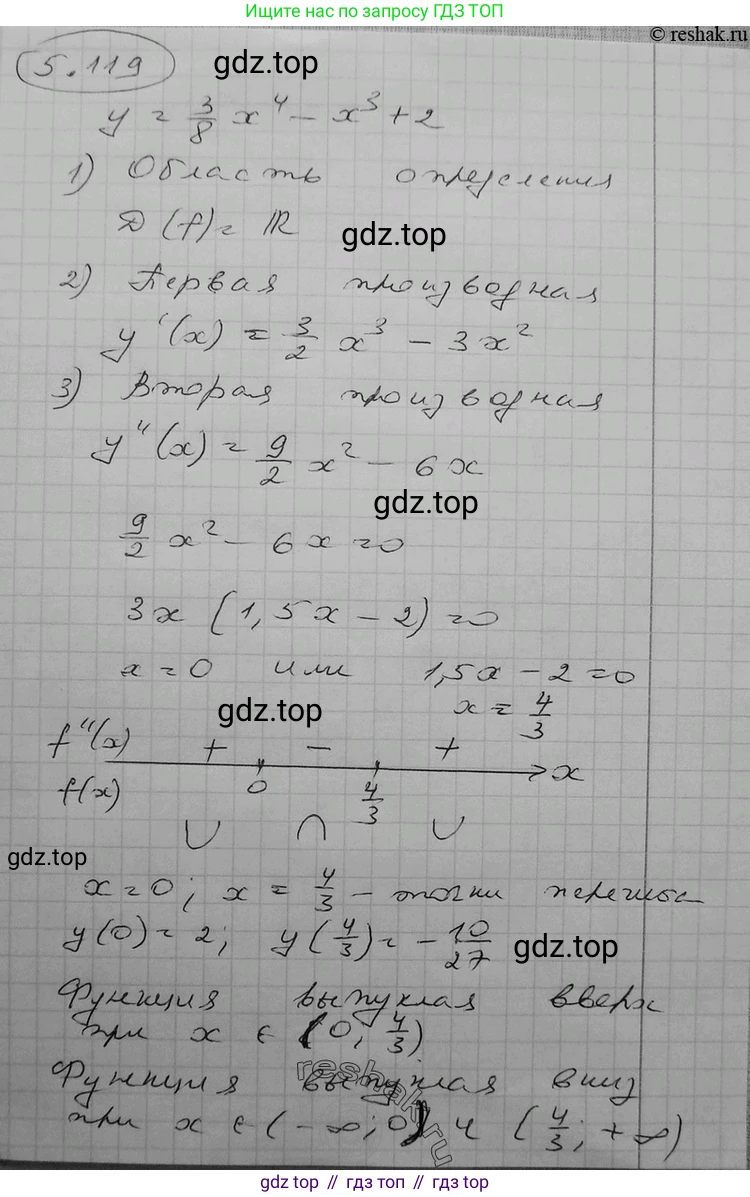 Ищите нас по запросу ГДЗ ТОП
© reshak.ru
5.119
gdz.top
y = 3/8 x⁴ - x³ + 2
1) Область определения
D (f) = ℝ
gdz.top
2) Первая производная
y'(x) = 3/2 x³ - 3x²
3) Вторая производная
y''(x) = 9/2 x² - 6x
gdz.top
9/2 x² - 6x = 0
3x (1,5x - 2) = 0
x = 0 или 1,5x - 2 = 0
gdz.top
x = 4/3
f''(x) + - + x
f(x) 0 4/3
∪ ∩ ∪
gdz.top
x = 0; x = 4/3 - точки перегиба
y(0) = 2; y(4/3) = - 10/27
gdz.top
Функция выпуклая вверх
при x ∈ (0; 4/3)
reshak.ru
Функция выпуклая вниз
при x ∈ (-∞; 0) и (4/3; +∞)
gdz.top // гдз топ // gdz top // гдз top